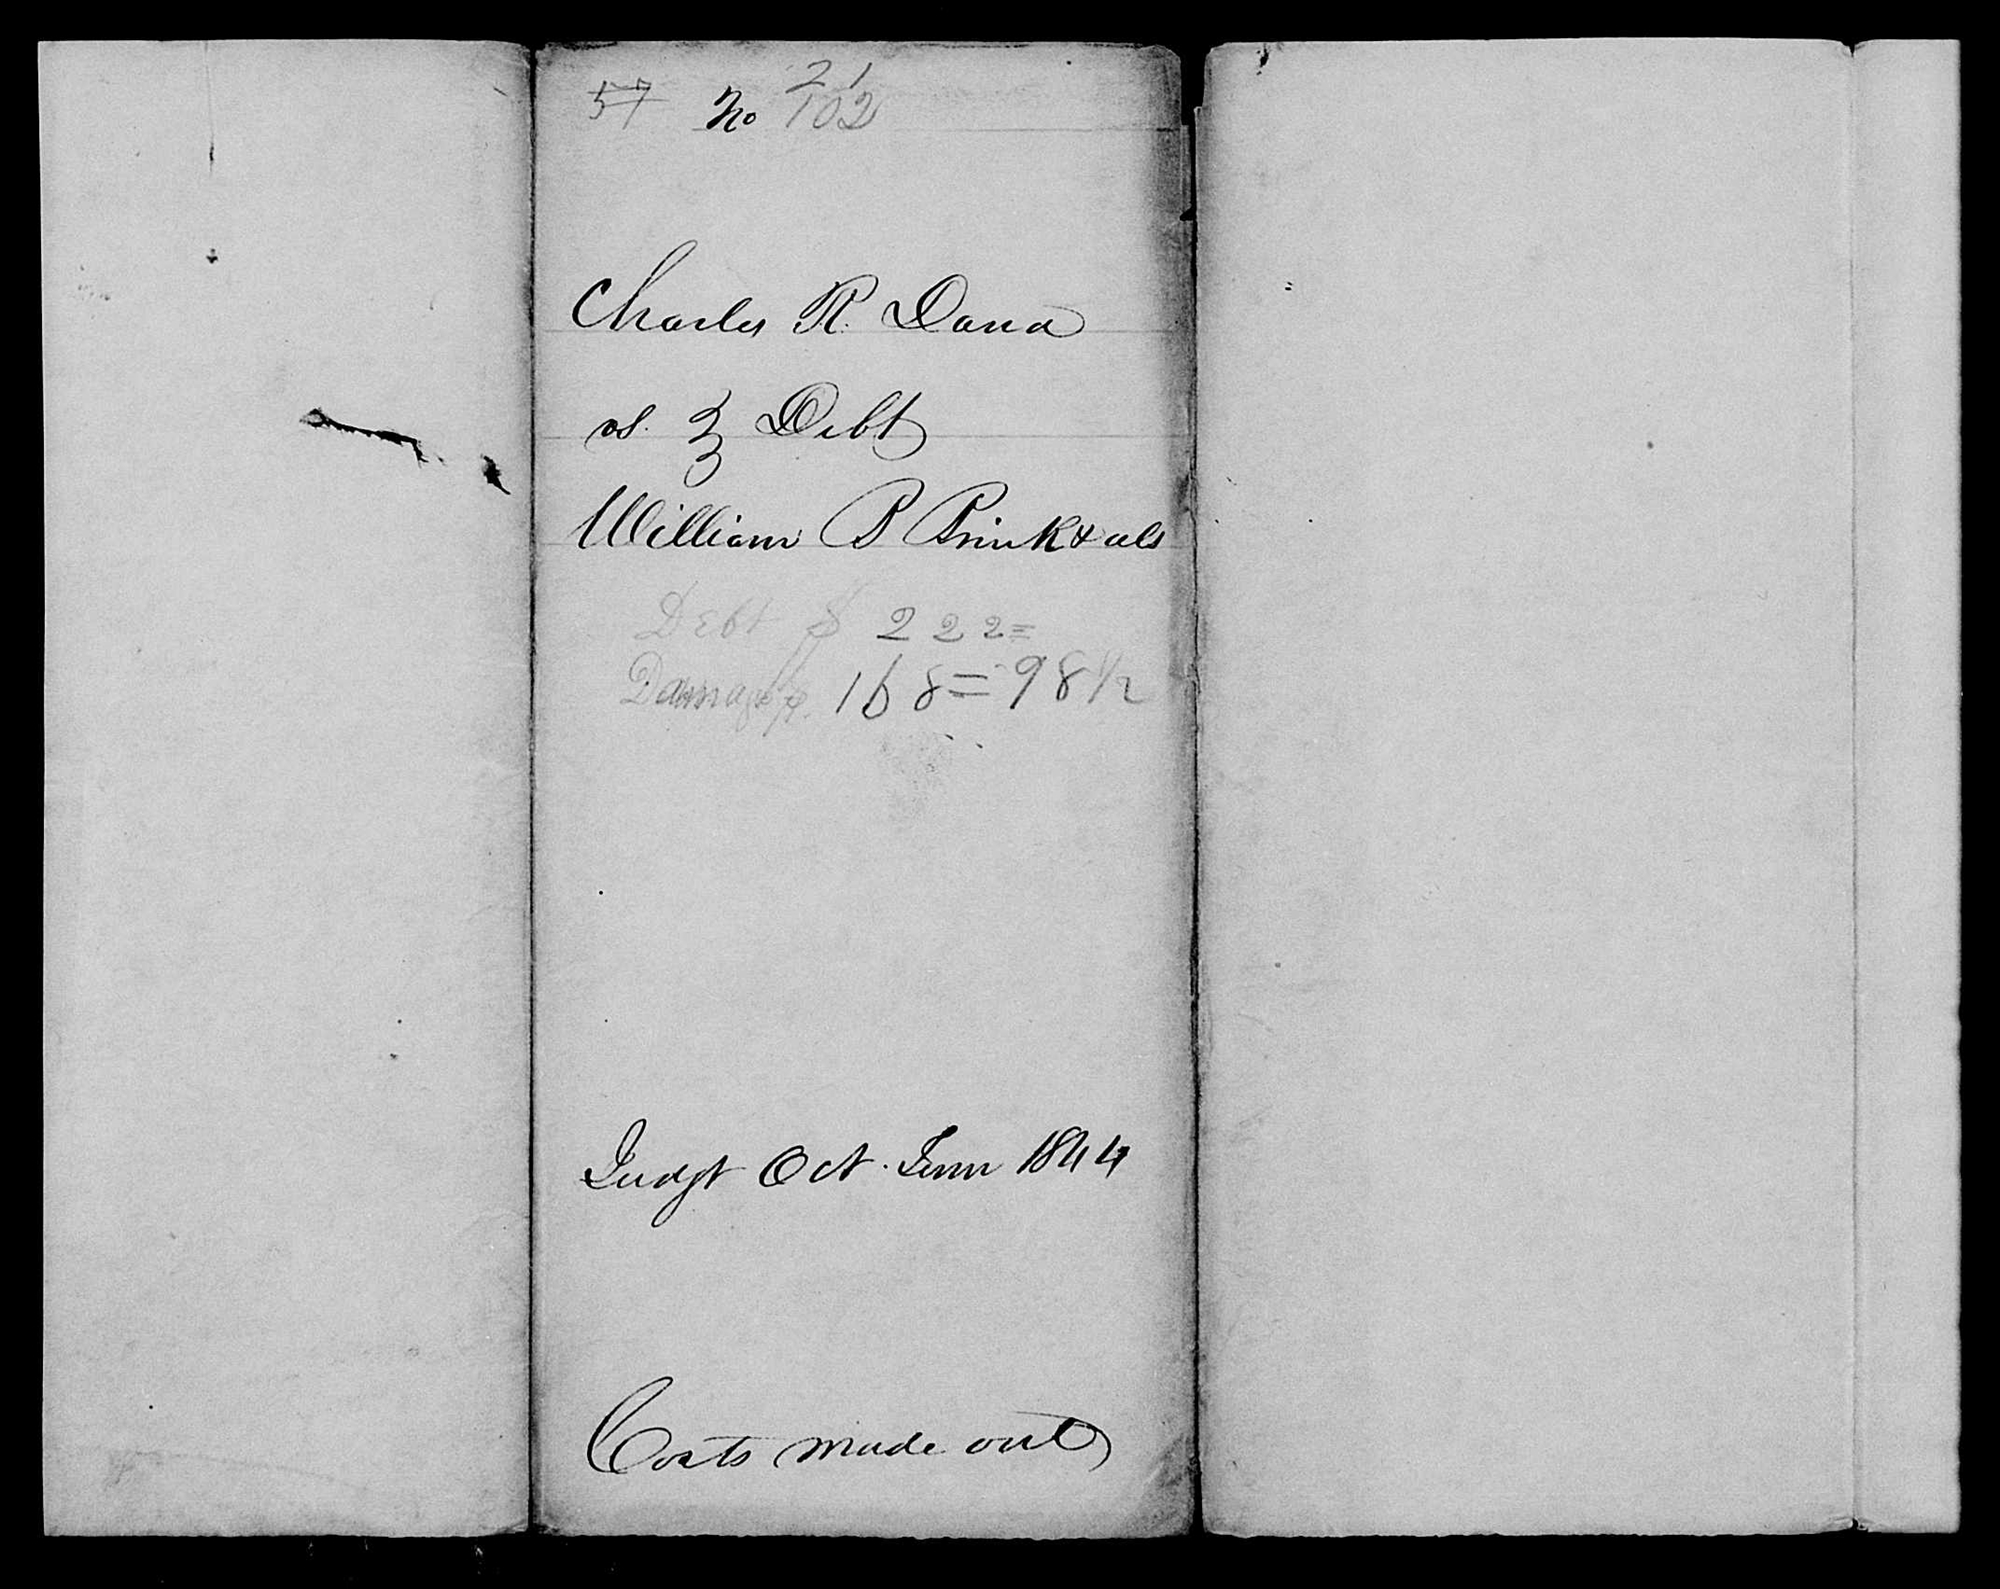 21
57 No 102
Charles R. Dana
vs. } Debt
William P Brink & als
Debt $ 222=
Damages $. 168=98 1/2
Judgt Oct. Term 1844
Costs made out